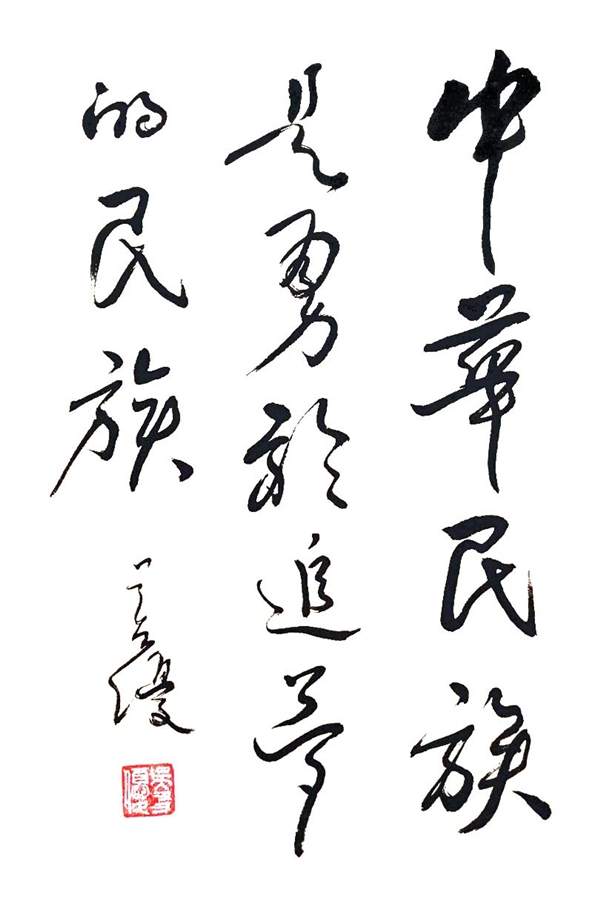 中華民族
是勇於追夢
的民族